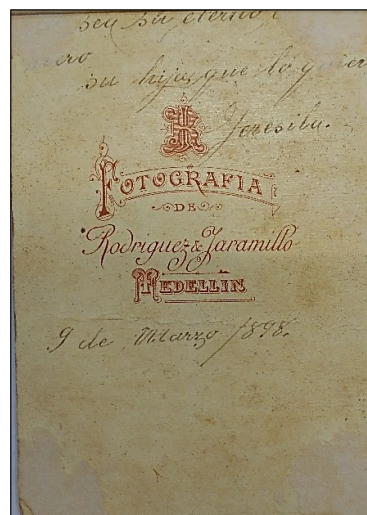 su eterno
su hija que lo quier
Teresita.
FOTOGRAFIA
DE
Rodriguez & Jaramillo
MEDELLIN
9 de Marzo 1898.